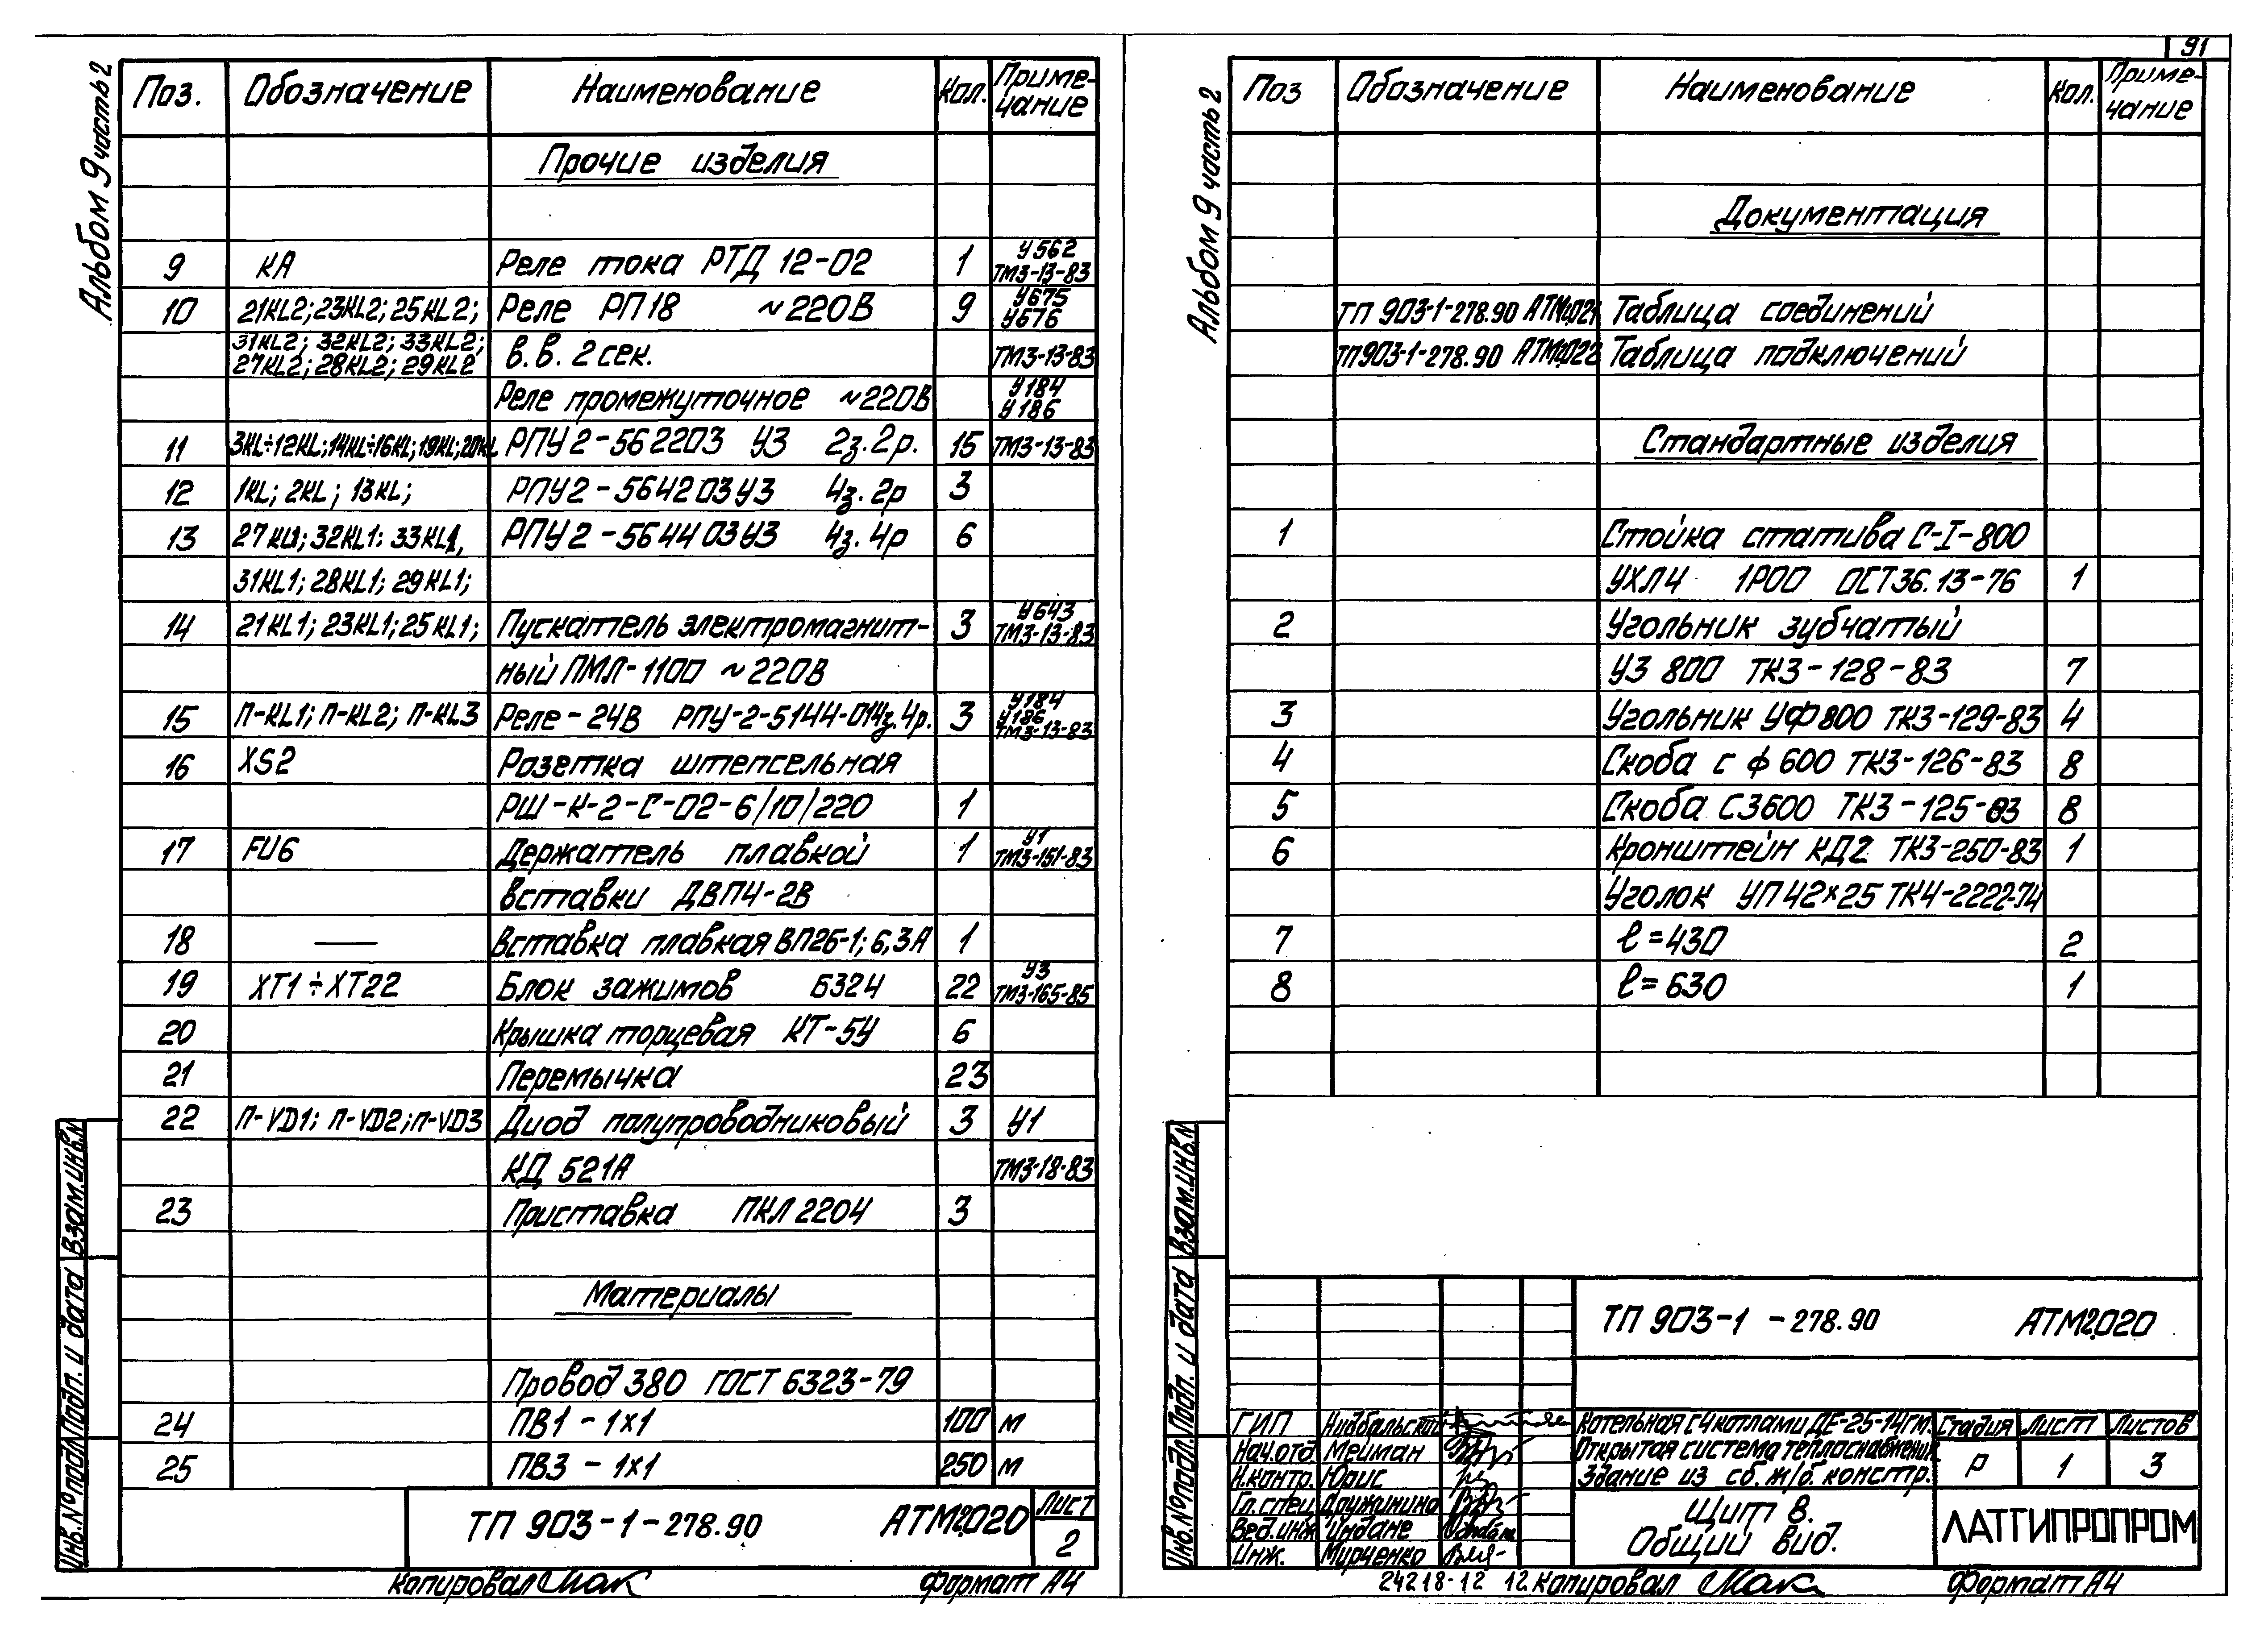 91
Альбом 9 часть 2
Поз. Обозначение Наименование Кол. Приме-
чание
Прочие изделия
9 КА Реле тока РТД 12-02 1 У562
ТМ3-13-83
10 21KL2; 23KL2; 25KL2; Реле РП18 ~220В 9 У675
У676
31KL2; 32KL2; 33KL2;
27KL2; 28KL2; 29KL2 в.в. 2 сек. ТМ3-13-83
Реле промежуточное ~220В У184
У186
11 3KL÷12KL; 14KL÷16KL; 19KL; 20KL РПУ2-562203 У3 2з.2р. 15 ТМ3-13-83
12 1KL; 2KL; 13KL; РПУ2-564203У3 4з.2р 3
13 27KL1; 32KL1; 33KL1, РПУ2-564403У3 4з.4р 6
31KL1; 28KL1; 29KL1;
14 21KL1; 23KL1; 25KL1; Пускатель электромагнит- 3 У643
ТМ3-13-83
ный ПМЛ-1100 ~220В
15 П-KL1; П-KL2; П-KL3 Реле-24В РПУ-2-5144-014з.4р. 3 У184
У186
ТМ3-13-83
16 XS2 Розетка штепсельная
РШ-К-2-С-02-6/10/220 1
17 FU6 Держатель плавкой 1 У1
ТМ3-151-83
вставки ДВП4-2В
18 — Вставка плавкая ВП2б-1; 6,3А 1
19 XT1÷XT22 Блок зажимов Б324 22 У3
ТМ3-165-85
20 Крышка торцевая КТ-5У 6
21 Перемычка 23
22 П-VD1; П-VD2; П-VD3 Диод полупроводниковый 3 У1
КД 521А ТМ3-18-83
23 Приставка ПКЛ 2204 3
Материалы
Провод 380 ГОСТ 6323-79
24 ПВ1 - 1х1 100 м
25 ПВ3 - 1х1 250 м
Инв.№подл. Подп. и дата Взам.инв.№
ТП 903-1-278.90 АТМ2.020 Лист
2
Копировал Формат А4
Альбом 9 часть 2
Поз Обозначение Наименование Кол. Приме-
чание
Документация
ТП 903-1-278.90 АТМ2.021 Таблица соединений
ТП903-1-278.90 АТМ2.022 Таблица подключений
Стандартные изделия
1 Стойка статива С-I-800
УХЛ4 1Р00 ОСТ36.13-76 1
2 Угольник зубчатый
УЗ 800 ТК3-128-83 7
3 Угольник УФ800 ТК3-129-83 4
4 Скоба сф600 ТК3-126-83 8
5 Скоба СЗ600 ТК3-125-83 8
6 Кронштейн КД2 ТК3-250-83 1
Уголок УП42х25 ТК4-2222-74
7 ℓ=430 2
8 ℓ=630 1
Инв.№подл. Подп. и дата Взам.инв.№
ТП 903-1 -278.90 АТМ2.020
ГИП
Нач.отд. Мейман
Н.контр. Юрис
Гл.спец. Дружинина
Вед.инж. Индане
Инж. Мурченко
Котельная с 4 котлами ДЕ-25-14ГМ.
Открытая система теплоснабжения.
Здание из сб. ж/б. констр.
Стадия Лист Листов
Р 1 3
Щит 8.
Общий вид.
ЛАТГИПРОПРОМ
24218-12 12 Копировал Формат А4